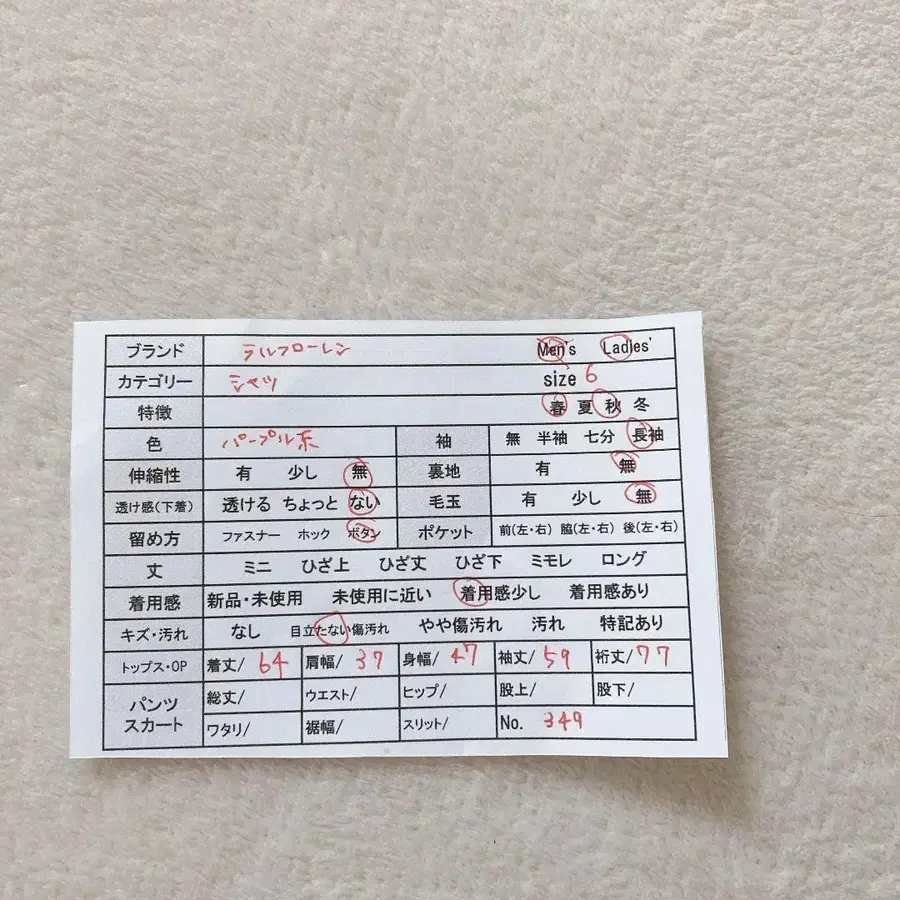 ブランド ラルフローレン Men's Ladies'
カテゴリー シャツ size 6
特徴 春 夏 秋 冬
色 パープル系 袖 無 半袖 七分 長袖
伸縮性 有 少し 無 裏地 有 無
透け感(下着) 透ける ちょっと ない 毛玉 有 少し 無
留め方 ファスナー ホック ボタン ポケット 前(左・右) 脇(左・右) 後(左・右)
丈 ミニ ひざ上 ひざ丈 ひざ下 ミモレ ロング
着用感 新品・未使用 未使用に近い 着用感少し 着用感あり
キズ・汚れ なし 目立たない傷汚れ やや傷汚れ 汚れ 特記あり
トップス・OP 着丈/ 64 肩幅/ 37 身幅/ 47 袖丈/ 59 裄丈/ 77
パンツ スカート 総丈/ ウエスト/ ヒップ/ 股上/ 股下/
ワタリ/ 裾幅/ スリット/ No. 349